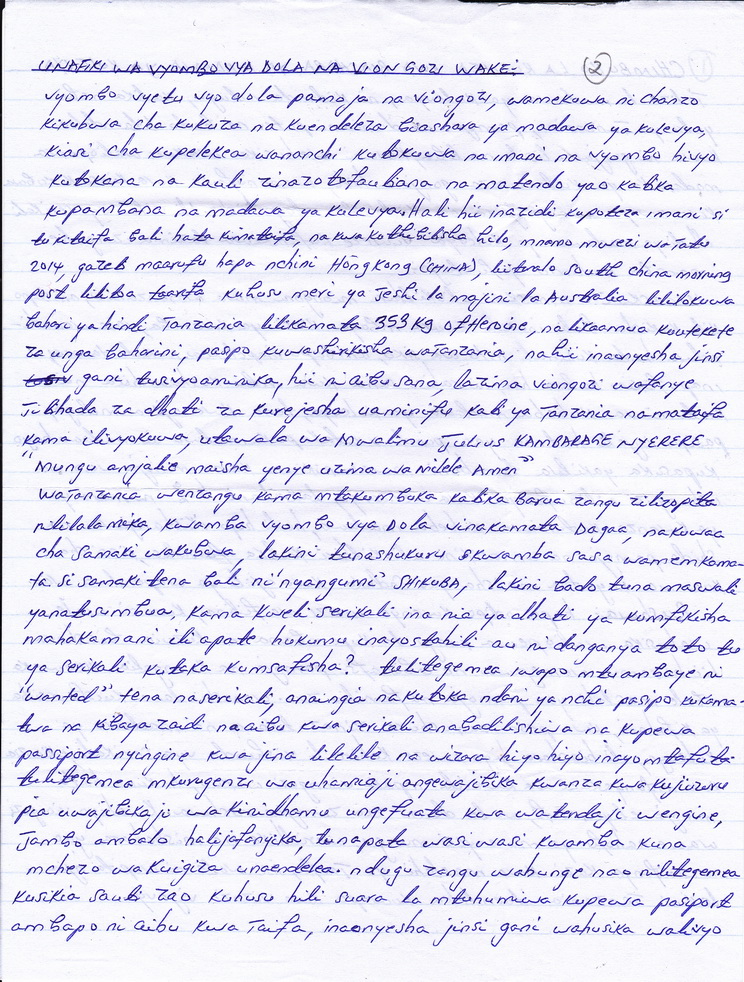 UNAFIKI WA VYOMBO VYA DOLA NA VIONGOZI WAKE: 2
vyombo vyetu vyo dola pamoja na viongozi, wamekuwa ni chanzo
kikubwa cha kukuza na kuendeleza biashara ya madawa ya kulevya,
kiasi cha kupelekea wananchi kutokuwa na imani na vyombo hivyo
kutokana na kauli zinazotofautiana na matendo yao katika
kupambana na madawa ya kulevya. Hali hii inazidi kupoteza imani si
tu kitaifa bali hata kimataifa, na kwa kuthibitisha hilo, mnamo mwezi wa Tatu
2014, gazeti maarufu hapa nchini Hong Kong (CHINA), liitwalo south china morning
post liliba taarifa kuhusu meri ya Jeshi la majini la Australia lililokuwa
bahari ya hindi Tanzania lilikamata 353 Kg Of Heroine, na likaamua kuutekete
za unga baharini, pasipo kuwashirikisha waTanzania, na hii inaonyesha jinsi
gani tusivyoaminika, hii ni aibu sana, lazima viongozi wafanye
Jitihada za dhati za kurejesha uaminifu kati ya Tanzania na mataifa
kama ilivyokuwa, utawala wa Mwalimu JULIUS KAMBARAGE NYERERE
"Mungu amjalie maisha yenye uzima wa milele Amen"
WaTanzania wenzangu kama mtakumbuka katika Barua zangu zilizopita
nililalamika, kwamba vyombo vya Dola vinakamata Dagaa, na kuwaa
cha samaki wakubwa, lakini tunashukuru kwamba sasa wamemkama-
ta si samaki tena bali ni 'nyangumi' SHIKUBA, lakini bado tuna maswali
yanatusumbua, kama kweli serikali ina nia ya dhati ya kumfikisha
mahakamani ili apate hukumu inayostahili au ni danganya toto tu
ya serikali kutaka kumsafisha? tulitegemea iwapo mtu ambaye ni
"wanted" tena na serikali, anaingia na kutoka ndani ya nchi pasipo kukama-
twa na kibaya zaidi na aibu kwa serikali anabadilishiwa na kupewa
passiport nyingine kwa jina lilelile na wizara hiyo hiyo inayomtafuta
tulitegemea mkurugenzi wa uhamiaji angewajibika kwanza kwa kujiuzuru
pia uwajibikaji wa kinidhamu ungefuata kwa watendaji wengine,
Jambo ambalo halijafanyika, tunapata wasiwasi kwamba kuna
mchezo wa kuigiza unaendelea. ndugu zangu wabunge nao nilitegemea
kusikia sauti zao kuhusu hili suara la mtuhumiwa kupewa pasiport
ambapo ni aibu kwa Taifa, inaonyesha jinsi gani wahusika walivyo